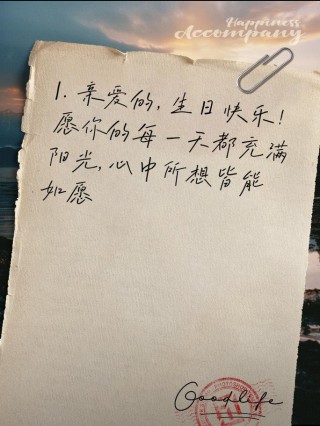 Happiness
Accompany
1. 亲爱的, 生日快乐!
愿你的每一天都充满
阳光, 心中所想皆能
如愿
Goodlife